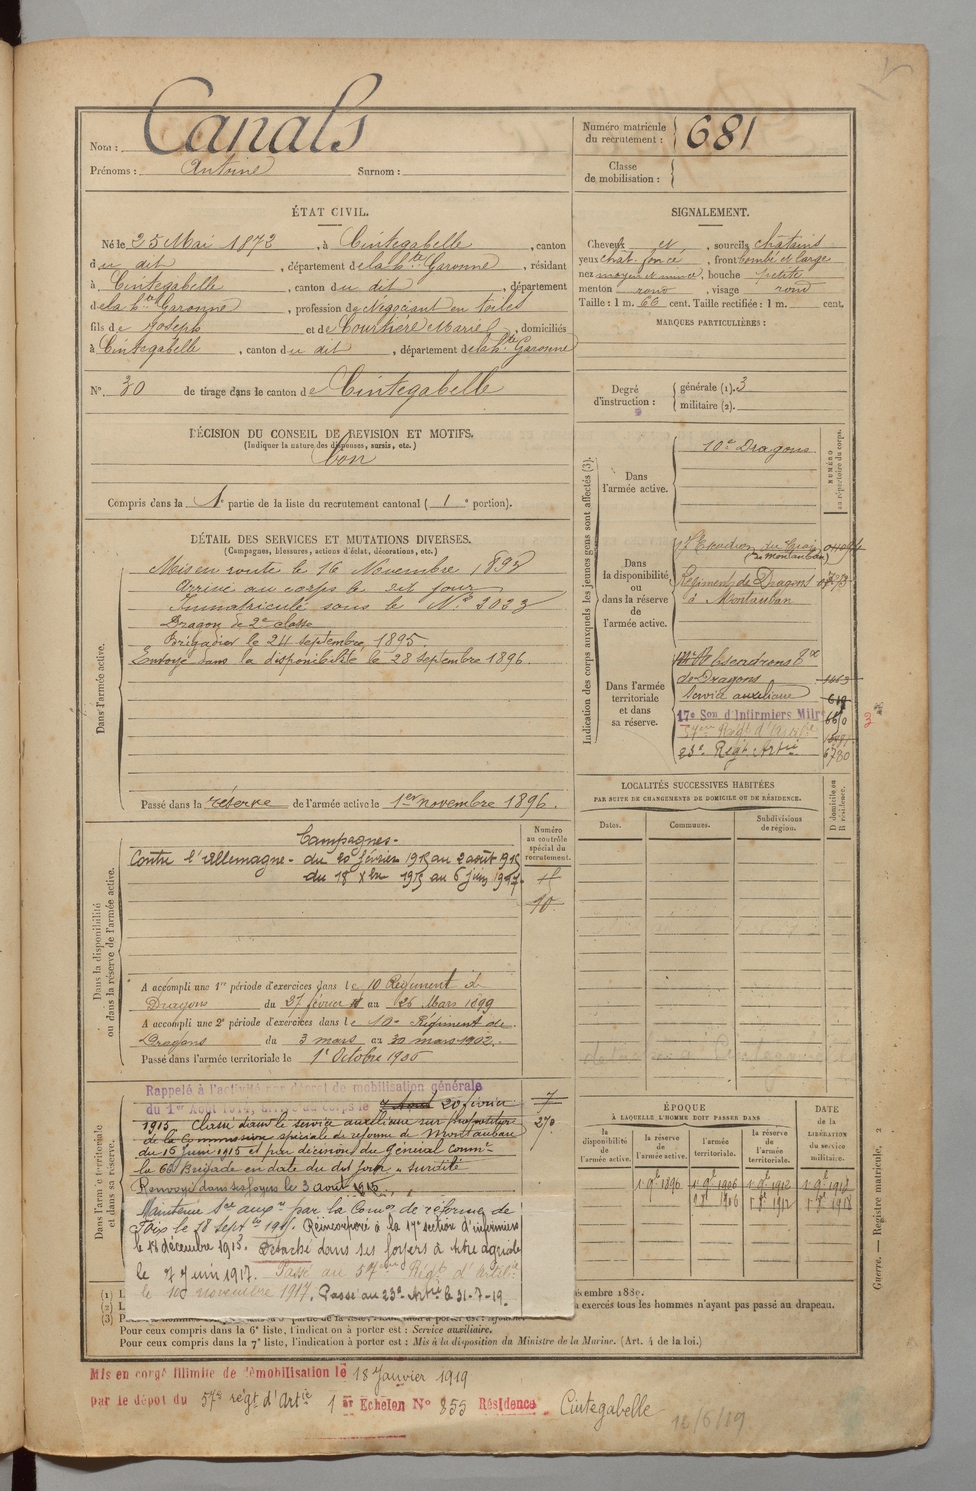 Nom : Canals
Prénoms : Antoine Surnom :
Numéro matricule du recrutement : 681
Classe de mobilisation :
ÉTAT CIVIL.
Né le 25 Mai 1872, à Cintegabelle, canton
du dit, département de la Hte Garonne, résidant
à Cintegabelle, canton du dit, département
de la Hte Garonne, profession de Négociant en toiles
fils de Joseph et de Courtière Marie, domiciliés
à Cintegabelle, canton du dit, département de la Hte Garonne
N°. 30 de tirage dans le canton de Cintegabelle
DÉCISION DU CONSEIL DE REVISION ET MOTIFS.
(Indiquer la nature des dispenses, sursis, etc.)
Bon
Compris dans la 1e partie de la liste du recrutement cantonal (1e portion).
DÉTAIL DES SERVICES ET MUTATIONS DIVERSES.
(Campagnes, blessures, actions d'éclat, décorations, etc.)
Dans l'armée active.
Mis en route le 16 Novembre 1893
Arrivé au corps le dit jour
Immatriculé sous le N° 2033
Dragon de 2e classe
Brigadier le 24 septembre 1895
Envoyé dans la disponibilité le 28 septembre 1896.
Passé dans la réserve de l'armée active le 1er novembre 1896.
Dans la disponibilité ou dans la réserve de l'armée active.
Numéro au contrôle spécial du recrutement.
Campagnes-
Contre l'Allemagne- du 20 février 1915 au 2 août 1915
du 18 Xbre 1915 au 6 juin 1917.
10
A accompli une 1re période d'exercices dans le 10 Régiment de
Dragons du 27 février au 26 Mars 1899
A accompli une 2e période d'exercices dans le 10e Régiment de
Dragons du 3 mars au 30 mars 1902.
Passé dans l'armée territoriale le 1er Octobre 1906
Dans l'armée territoriale et dans sa réserve.
Rappelé à l'activité par décret de mobilisation générale
du 1er Août 1914, arrivé au corps le 20 février
1915 Classé dans le service auxiliaire sur proposition
de la Commission spéciale de réforme de Montauban
du 15 juin 1915 et par décision du Général Commt
la 66e Brigade en date du dit jour "surdité
Renvoyé dans ses foyers le 3 août 1915
Maintenu Sce auxre par la Comon de réforme de
Foix le 28 septbre 1915. Réincorporé à la 17e section d'infirmiers
le 18 décembre 1915. Détaché dans ses foyers à titre agricole
le 7 juin 1917. Passé au 57eme Régt d'Artillie
le 10 novembre 1917. Passé au 23e Artie le 31-7-19.
7
270
SIGNALEMENT.
Cheveux et, sourcils châtains
yeux chât. foncé, front bombé et large
nez moyen et mince, bouche petite
menton rond, visage rond
Taille : 1 m. 66 cent. Taille rectifiée : 1 m. cent.
MARQUES PARTICULIÈRES :
Degré d'instruction : générale (1). 3
militaire (2).
Indication des corps auxquels les jeunes gens sont affectés (3).
NUMÉRO au répertoire du corps.
Dans l'armée active.
10e Dragons
Dans la disponibilité ou dans la réserve de l'armée active.
(de Montauban)
Régiment de Dragons
à Montauban
Dans l'armée territoriale et dans sa réserve.
Escadrons
de Dragons
Service auxiliaire
17e Son d'Infirmiers Milres 660
57eme Régt d'Artie
23e Régt Artie 6780
3
LOCALITÉS SUCCESSIVES HABITÉES
PAR SUITE DE CHANGEMENTS DE DOMICILE OU DE RÉSIDENCE.
Dates. Communes. Subdivisions de région.
D domicile ou R résidence.
ÉPOQUE
À LAQUELLE L'HOMME DOIT PASSER DANS
la disponibilité de l'armée active. la réserve de l'armée active. l'armée territoriale. la réserve de l'armée territoriale.
DATE de la LIBÉRATION du service militaire.
1 9e 1896 1 9e 1906 1 9e 1912 1 9e 1918
(1) L
(2) L
(3)
décembre 1889.
a exercés tous les hommes n'ayant pas passé au drapeau.
Pour ceux compris dans la 6e liste, l'indication à porter est : Service auxiliaire.
Pour ceux compris dans la 7e liste, l'indication à porter est : Mis à la disposition du Ministre de la Marine. (Art. 4 de la loi.)
Guerre. — Registre matricule. 2
Mis en congé illimité de démobilisation le 18 Janvier 1919
par le dépôt du 57e régt d'Artie 1er Echelon N° 855 Résidence Cintegabelle
12/6/19